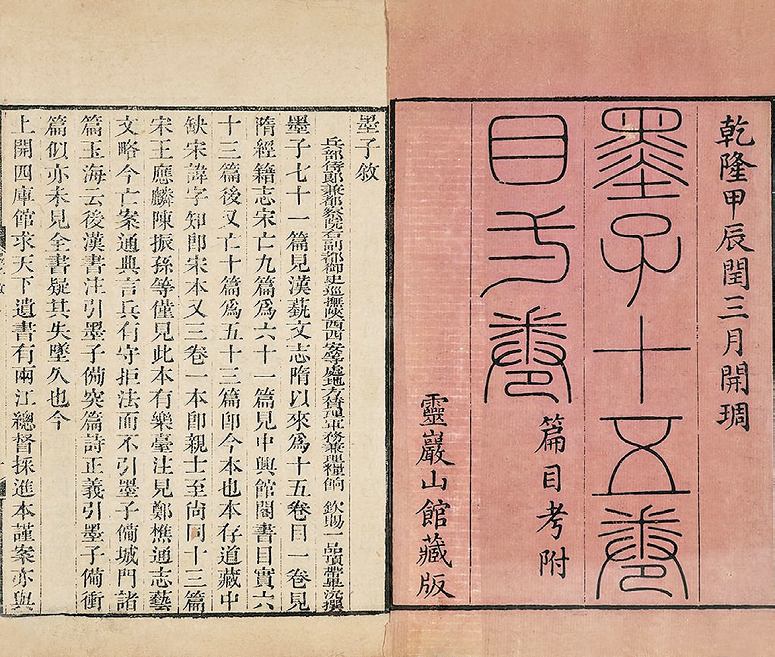 乾隆甲辰閏三月開琱
墨子十五卷
目弌卷
篇目考附
靈巖山館藏版
墨子敘
兵部侍郎兼都察院右副都御史巡撫陝西西安等處地方贊理軍務兼理糧餉 欽賜一品頂帶畢沅撰
墨子七十一篇見漢蓺文志隋以來爲十五卷目一卷見
隋經籍志宋亡九篇爲六十一篇見中興館閣書目實六
十三篇後又亡十篇爲五十三篇卽今本也本存道藏中
缺宋諱字知卽宋本又三卷一本卽親士至尙同十三篇
宋王應麟陳振孫等僅見此本有樂臺注見鄭樵通志藝
文略今亡案通典言兵有守拒法而不引墨子備城門諸
篇玉海云後漢書注引墨子備突篇詩正義引墨子備衝
篇似亦未見全書疑其失墜久也今
上開四庫館求天下遺書有兩江總督採進本謹案亦與